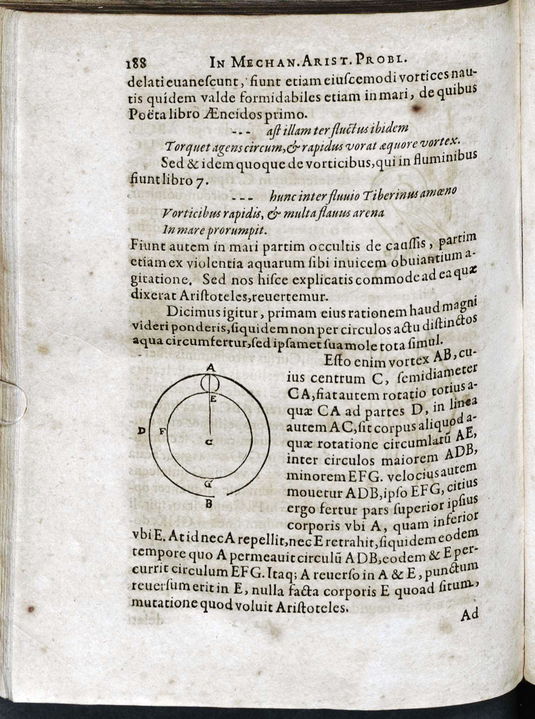 188 IN MECHAN. ARIST. PROBL.
delati euanescunt, fiunt etiam eiuscemodi vortices nau-
tis quidem valde formidabiles etiam in mari, de quibus
Poëta libro Æneidos primo.
--- ast illam ter fluctus ibidem
Torquet agens circum, & rapidus vorat æquore vortex.
Sed & idem quoque de vorticibus, qui in fluminibus
fiunt libro 7.
--- hunc inter fluuio Tiberinus amœno
Vorticibus rapidis, & multa flauus arena
In mare prorumpit.
Fiunt autem in mari partim occultis de caussis, partim
etiam ex violentia aquarum sibi inuicem obuiantium a-
gitatione. Sed nos hisce explicatis commode ad ea quæ
dixerat Aristoteles, reuertemur.
Dicimus igitur, primam eius rationem haud magni
videri ponderis, siquidem non per circulos actu distinctos
aqua circumfertur, sed ipsamet sua mole tota simul.
Esto enim vortex AB, cu-
ius centrum C, semidiameter
CA, fiat autem rotatio totius a-
quæ CA ad partes D, in linea
autem AC, sit corpus aliquod a-
quæ rotatione circumlatū AE,
inter circulos maiorem ADB,
minorem EFG. velocius autem
mouetur ADB, ipso EFG, citius
ergo fertur pars superior ipsius
corporis vbi A, quam inferior
vbi E. At id nec A repellit, nec E retrahit, siquidem eodem
tempore quo A permeauit circulū ADB, eodem & E per-
currit circulum EFG. Itaq; A reuerso in A & E, punctum
reuersum erit in E, nulla facta corporis E quoad situm,
mutatione quod voluit Aristoteles.
Ad
A
E
D
F
C
G
B